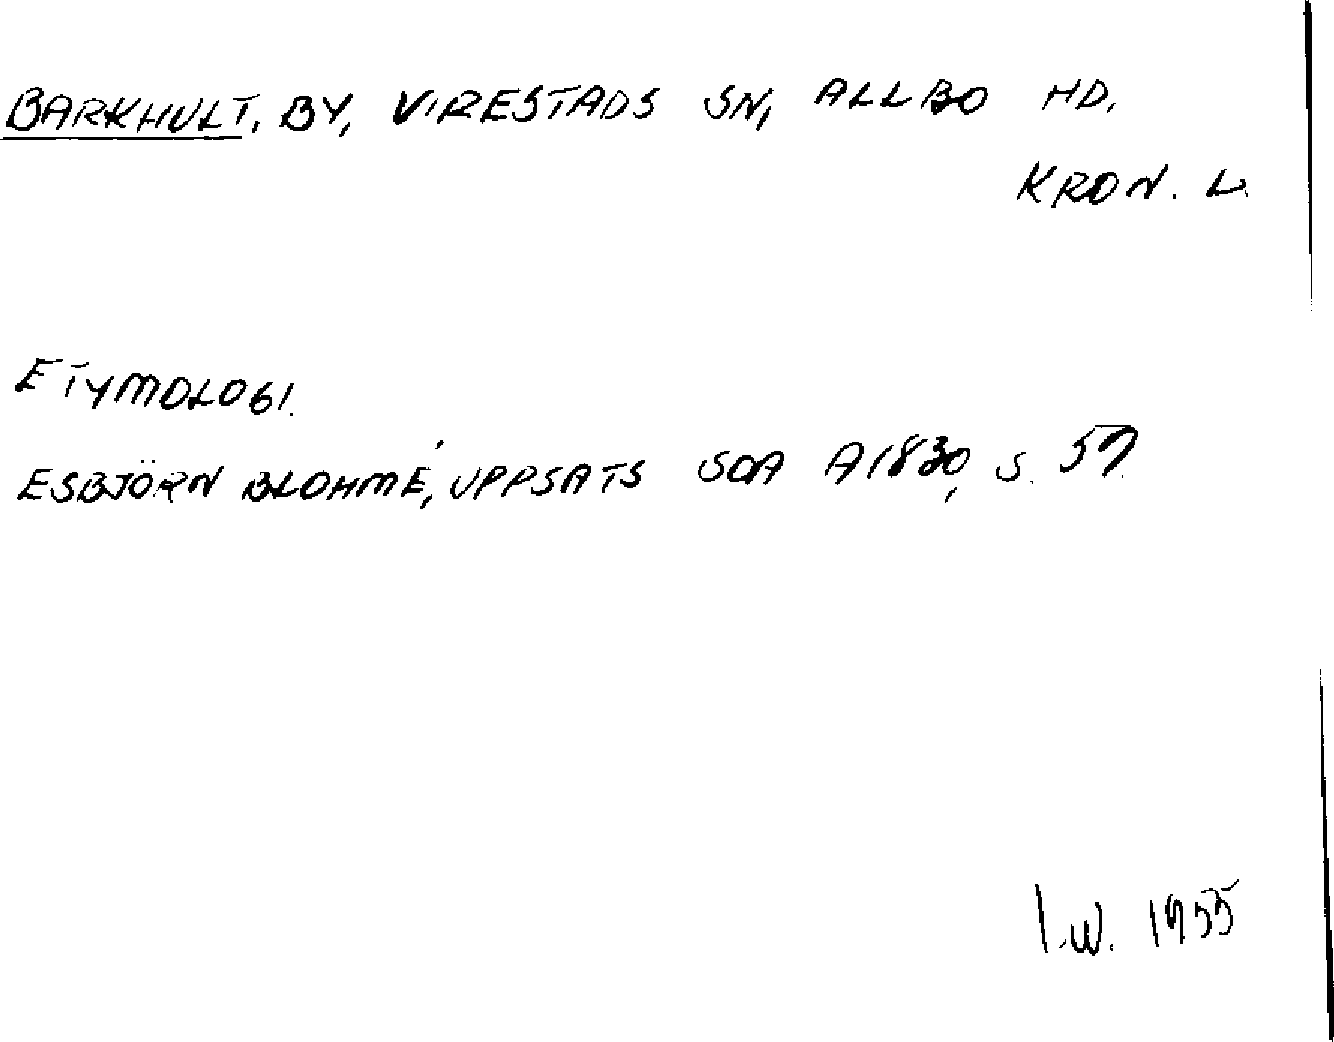 BARKHULT. BY, VIRESTADS SN, ALLBO HD.
KRON. L.
ETYMOLOGI.
ESBJÖRN BLOHMÉ, UPPSATS SOA A1830, S. 57.
I.W. 1955